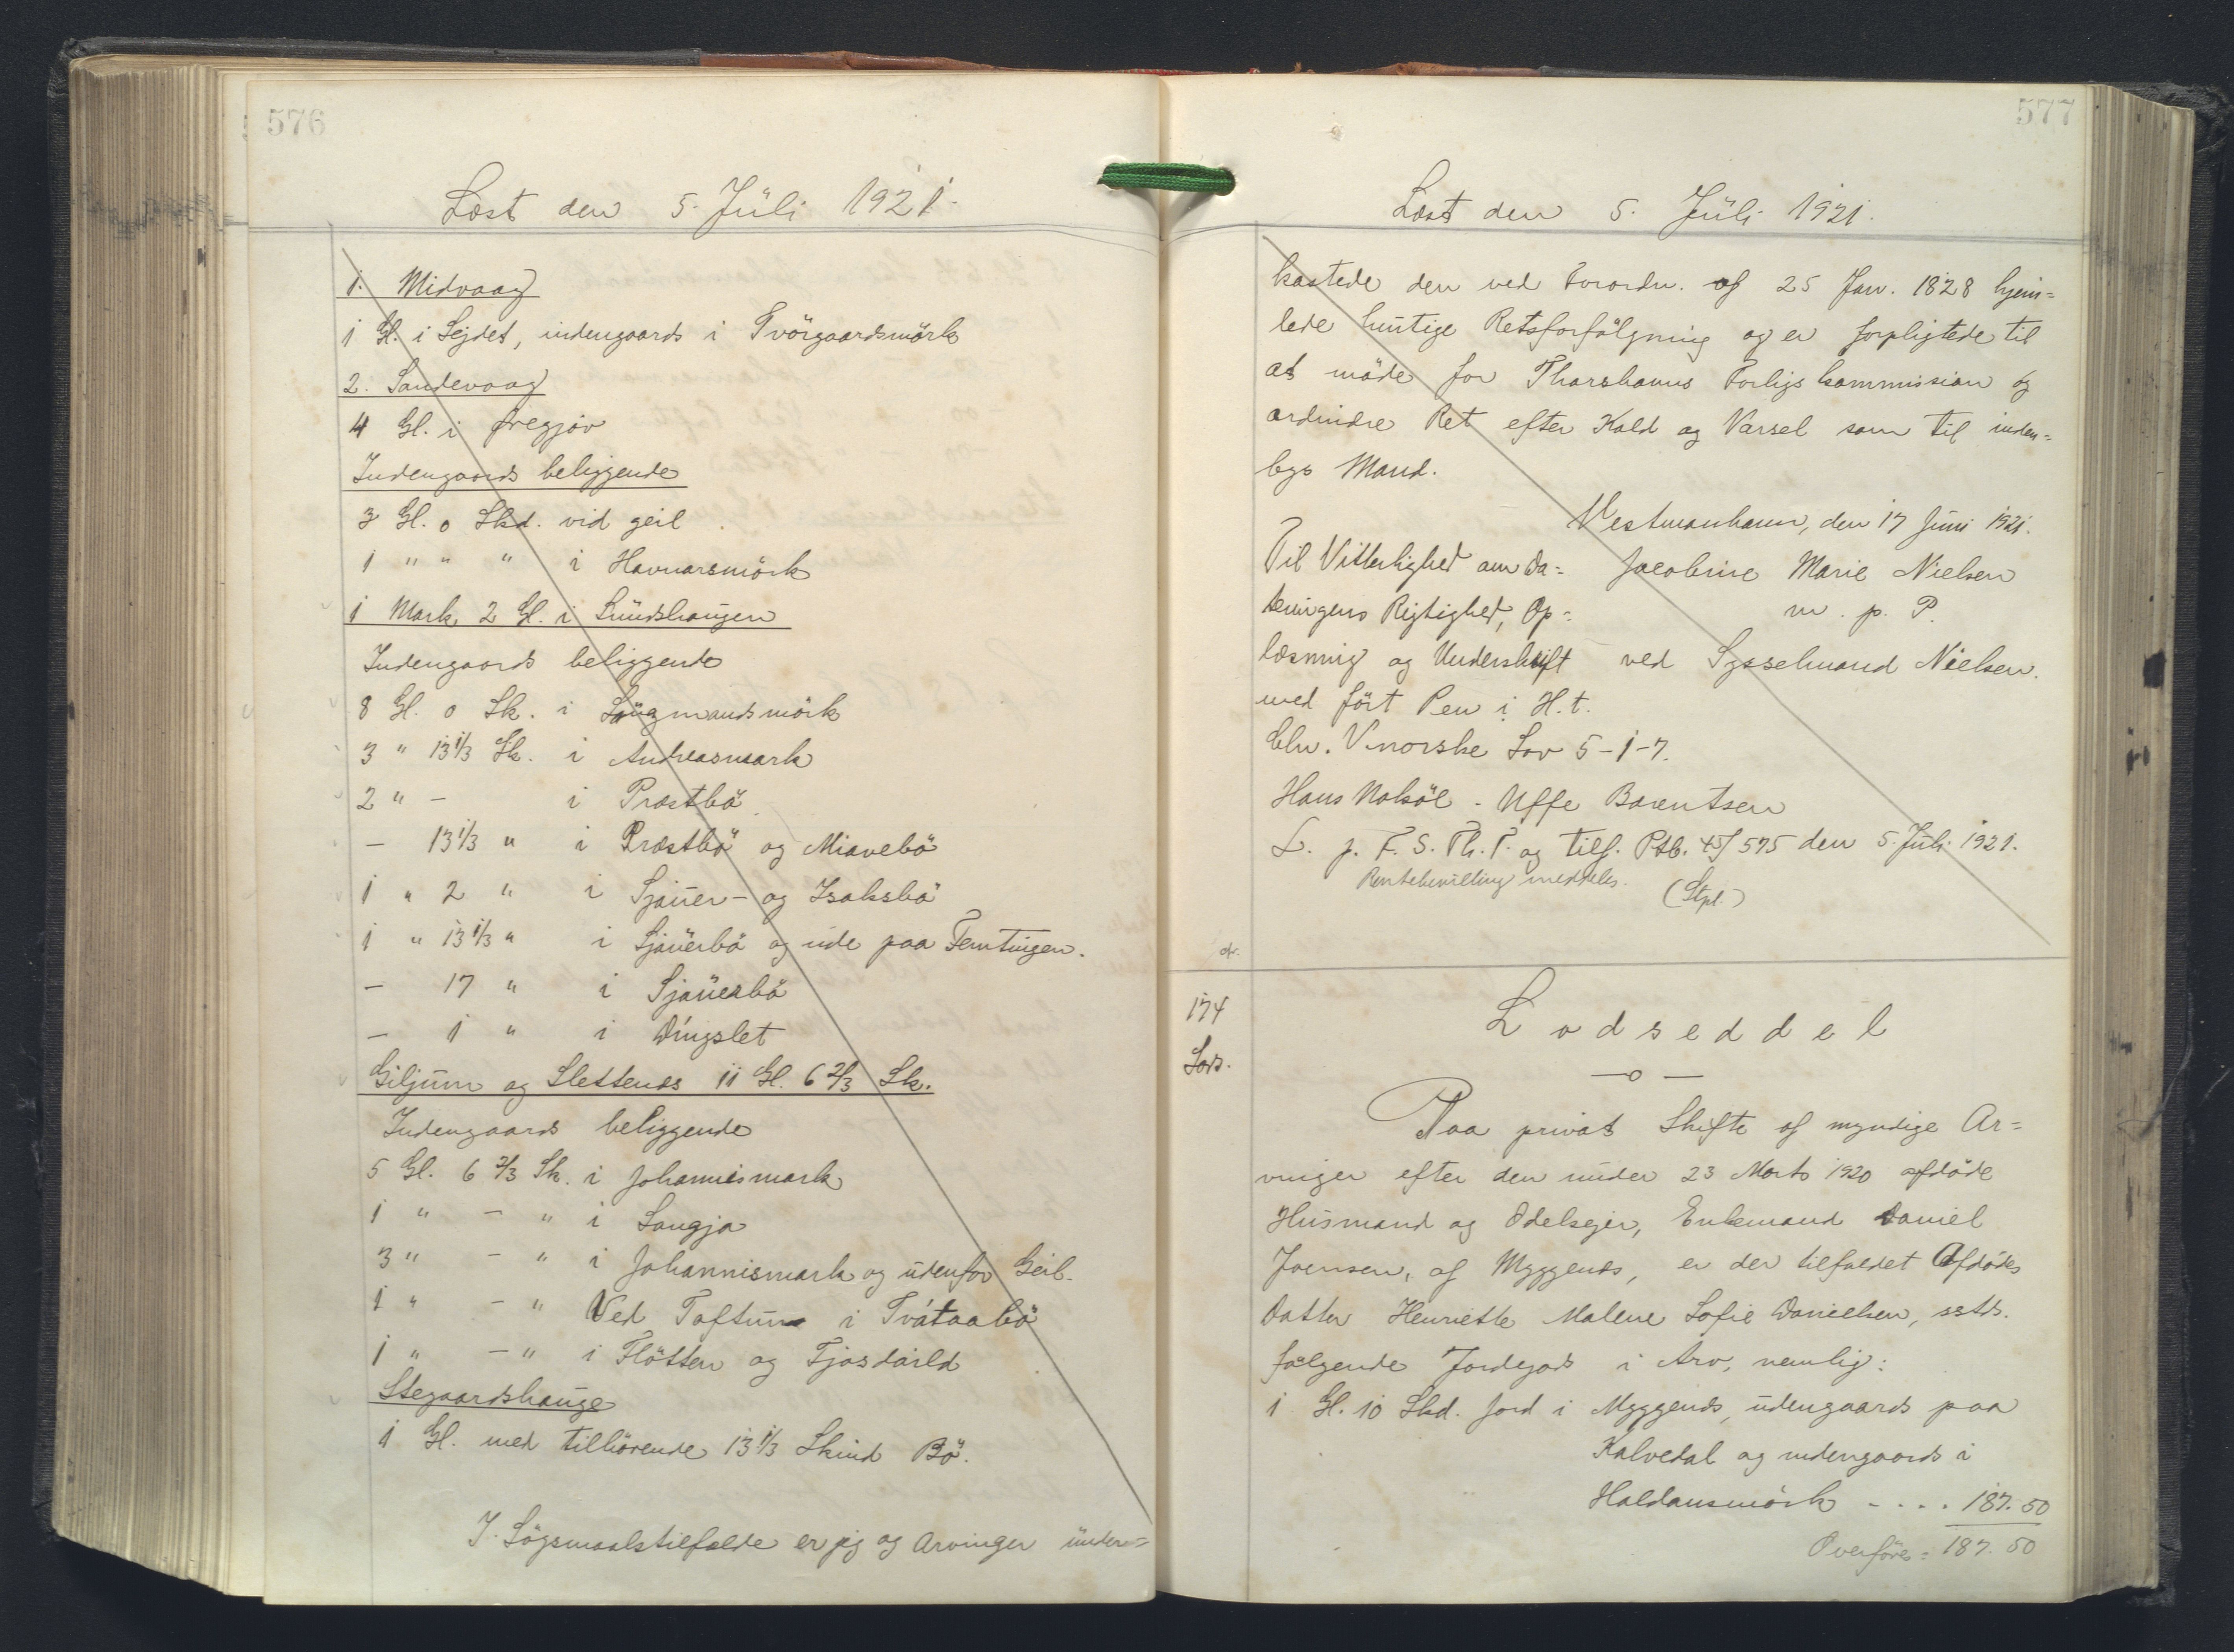 576
Læst den 5. Juli 1921.
1. Midvaag
1 Gl. i Lejdet, indengaards i Tvörgaardsmörk
2. Sandevaag
4 Gl. i Fregjov
Indengaards beliggende
3 Gl. 0 Skd. vid geil
1 " " " i Havnarsmörk
1 Mark 2 Gl. i Lundshaugen
Indengaards beliggende
8 Gl. 0 Sk. i Laugmandsmörk
3 " 13 1/3 Sk. i Andreasmark
2 " – i Præstbö
– 13 1/3 " i Præstbö og Miavebö
1 " 2 " i Sjauer- og Isaksbö
1 " 13 1/3 " i Sjauerbö og ude paa Temtingen.
– 17 " i Sjauerbö
– 1 " i Dingslet
Giljum og Slettenæs 11 Gl. 6 2/3 Sk.
Indengaards beliggende
5 Gl. 6 2/3 Sk. i Johannismark
1 " – " i Langja
3 " – " i Johannismark og udenfor Geil.
1 " – " Ved Toftum i Tvátaabö
1 " – " i Flötten og
Stegaardshauge
1 Gl. med tilhörende 13 1/3 Skind Bö.
I Sögsmaalstilfælde er jeg og Arvinger under=
577
Læst den 5. Juli 1921.
kastede den ved Forordn. af 25 Jan. 1828 hjem=
lede hurtige Retsforfölgning og er forpligtede til
at möde for Thorshavns Forligskommission og
ordinære Ret efter Kald og Varsel som til inden=
bys Mand.
Vestmanhavn, den 17 Juni 1921.
Til Vitterlighed om Da= Jacobine Marie Nielsen
teringens Rigtighed, Op= m. p. P.
læsning og Underskrift ved Sysselmand Nielsen.
med fört Pen i H.t.
Chr. V norske Lov 5-1-7.
Hans Nolsöe - Uffe Barentsen
L. p. F. S. Th. T. og tilf. Ptb. 45/575 den 5. Juli 1921.
Rentebevilling meddeles. (Stpl.)
174
Lods.
Lodseddel
—o—
Paa privat Skifte af myndige Ar=
vinger efter den under 23 Marts 1920 afdöde
Husmand og Odelsejer, Enkemand Daniel
Joensen, af Myggenæs, er der tilfaldet Afdödes
Datter Henriette Malene Sofie Danielsen, ssts.
følgende Jordegods i Arv, nemlig:
1 Gl. 10 Skd. Jord i Myggenæs, udengaards paa
Kalvedal og indengaards i
Haldansmörk - . . . 187.50
Overföres = 187.50